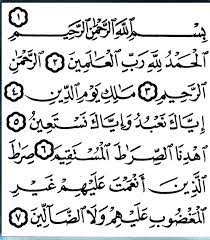 ١
بِسْمِ اللَّهِ الرَّحْمَٰنِ الرَّحِيمِ
الْحَمْدُ لِلَّهِ رَبِّ الْعَالَمِينَ ٢ الرَّحْمَٰنِ
الرَّحِيمِ ٣ مَالِكِ يَوْمِ الدِّينِ ٤
إِيَّاكَ نَعْبُدُ وَإِيَّاكَ نَسْتَعِينُ ٥
اهْدِنَا الصِّرَاطَ الْمُسْتَقِيمَ ٦ صِرَاطَ
الَّذِينَ أَنْعَمْتَ عَلَيْهِمْ غَيْرِ
الْمَغْضُوبِ عَلَيْهِمْ وَلَا الضَّالِّينَ ٧